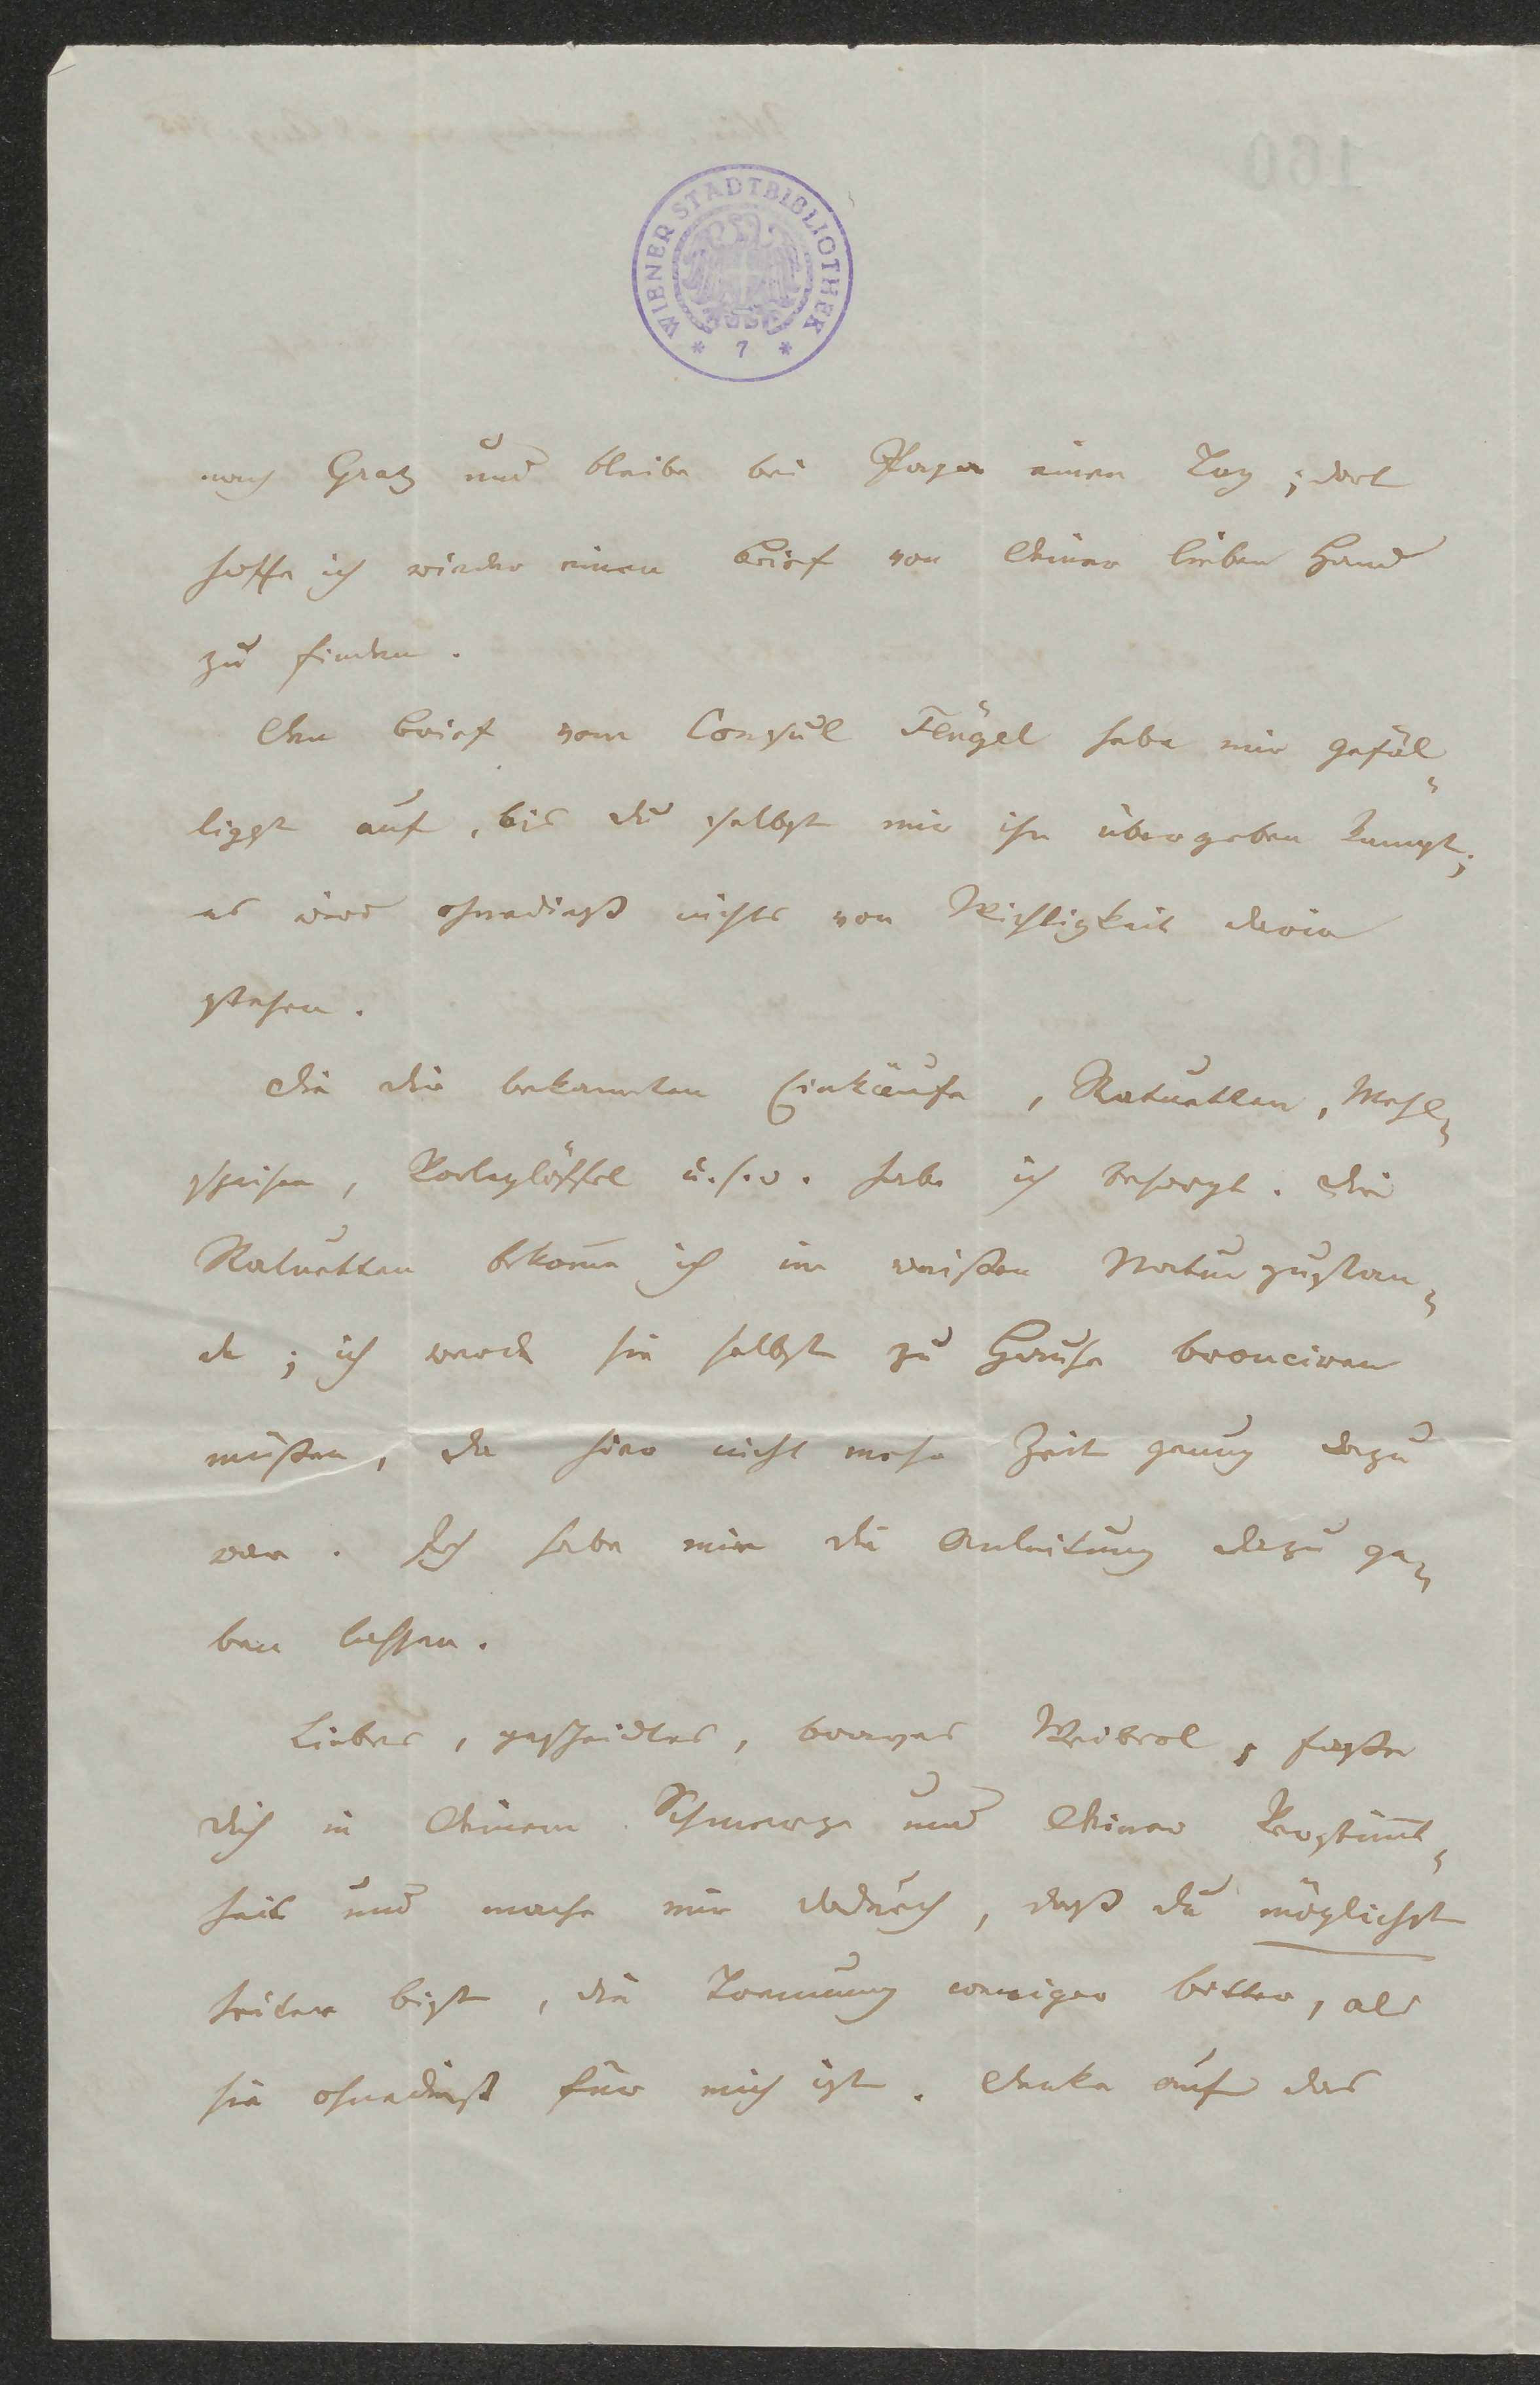 160
WIENER STADTBIBLIOTHEK
* 7 *
nach Gratz und bleibe bei Papa einen Tag; dort
hoffe ich wieder einen Brief von Deiner lieben Hand
zu finden.
Den Brief vom Consul Flügel hebe mir gefäl-
ligst auf, bis du selbst mir ihn übergeben kannst;
es wird ohnedieß nichts von Wichtigkeit darin
stehen.
Die dir bekannten Einkäufe, Statuetten, Mehl-
speisen, Vorleglöffel u.s.w. habe ich besorgt. Die
Statuetten bekome ich im weißen Naturzustan-
de; ich werde sie selbst zu Hause bronciren
müßen, da hier nicht mehr Zeit genug dazu
war. Ich habe mir die Anleitung dazu ge-
ben lassen.
Liebes, gescheidtes, braves Weiberl, faße
dich in Deinem Schmerze und Deiner Verstimt-
heit und mache mir dadurch, daß du möglichst
heiter bist, die Trennung weniger bitter, als
sie ohnedieß für mich ist. Denke auf das